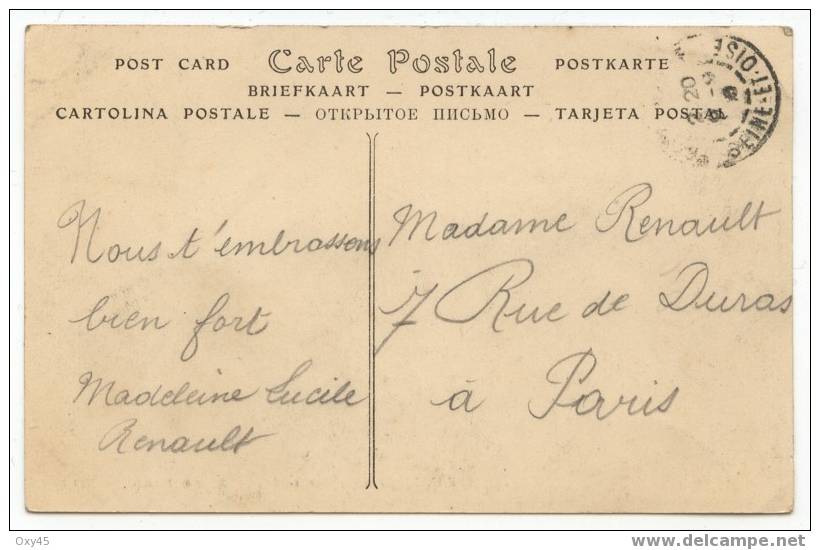 POST CARD Carte Postale POSTKARTE
BRIEFKAART — POSTKAART
CARTOLINA POSTALE — ОТКРЫТОЕ ПИСЬМО — TARJETA POSTAL
SEINE-ET-OISE
Nous t'embrassons
bien fort
Madeleine Lucile
Renault
Madame Renault
7 Rue de Duras
à Paris
Oxy45
delcampe.net